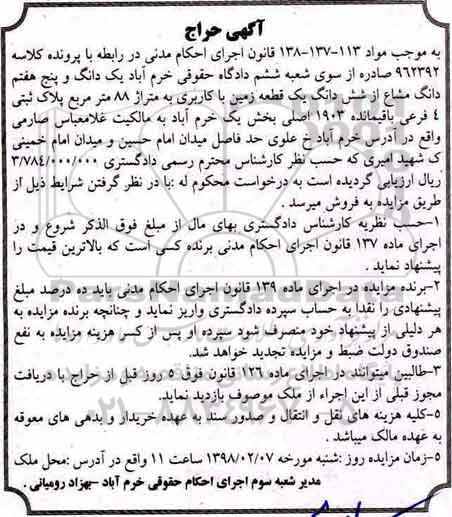 آگهی حراج
به موجب مواد ۱۱۳-۱۳۷-۱۳۸ قانون اجرای احکام مدنی در رابطه با پرونده کلاسه
۹۶۲۳۹۲ صادره از سوی شعبه ششم دادگاه حقوقی خرم آباد یک دانگ و پنج هفتم
دانگ مشاع از شش دانگ یک قطعه زمین با کاربری به متراژ ۸۸ متر مربع پلاک ثبتی
۴ فرعی باقیمانده ۱۹۰۳ اصلی بخش یک خرم آباد به مالکیت غلامعباس صارمی
واقع در آدرس خرم آباد خ علوی حد فاصل میدان امام حسین و میدان امام خمینی
ک شهید امیری که حسب نظر کارشناس محترم رسمی دادگستری ۳/۷۸۴/۰۰۰/۰۰۰
ریال ارزیابی گردیده است به درخواست محکوم له :با در نظر گرفتن شرایط ذیل از
طریق مزایده به فروش میرسد .
۱-حسب نظریه کارشناس دادگستری بهای مال از مبلغ فوق الذکر شروع و در
اجرای ماده ۱۳۷ قانون اجرای احکام مدنی برنده کسی است که بالاترین قیمت را
پیشنهاد نماید .
۲-برنده مزایده در اجرای ماده ۱۳۹ قانون اجرای احکام مدنی باید ده درصد مبلغ
پیشنهادی را نقدا به حساب سپرده دادگستری واریز نماید و چنانچه برنده مزایده به
هر دلیلی از پیشنهاد خود منصرف شود سپرده او پس از کسر هزینه مزایده به نفع
صندوق دولت ضبط و مزایده تجدید خواهد شد.
۳-طالبین میتوانند در اجرای ماده ۱۲۶ قانون فوق ۵ روز قبل از حراج با دریافت
مجوز قبلی از این اجراء از ملک موصوف بازدید نماید.
۵-کلیه هزینه های نقل و انتقال و صدور سند به عهده خریدار و بدهی های معوقه
به عهده مالک میباشد .
۵-زمان مزایده روز :شنبه مورخه ۱۳۹۸/۰۲/۰۷ ساعت ۱۱ واقع در آدرس :محل ملک
مدیر شعبه سوم اجرای احکام حقوقی خرم آباد -بهزاد رومیانی .
ParsNamadData
۰۲۱-۸۸۳۴۹۶۷۰-۵